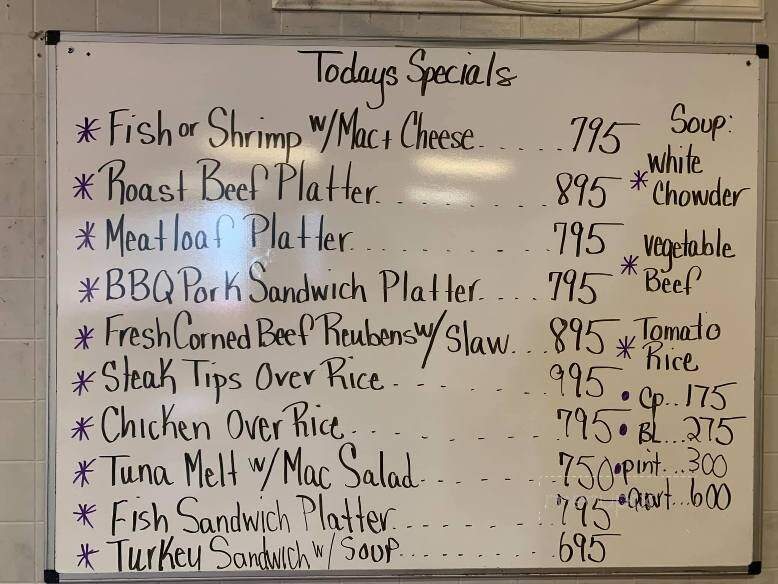 Todays Specials
* Fish or Shrimp w/Mac + Cheese...... 795
* Roast Beef Platter.......... 895
* Meatloaf Platter.......... 795
* BBQ Pork Sandwich Platter..... 795
* Fresh Corned Beef Reubens w/Slaw... 895
* Steak Tips Over Rice - - - - - - 995
* Chicken Over Rice.......... 795
* Tuna Melt w/ Mac Salad....... 750
* Fish Sandwich Platter........ 795
* Turkey Sandwich w/ Soup........ 695
Soup:
* White
Chowder
* Vegetable
Beef
* Tomato
Rice
• Cp...175
• BL...275
• pint...300
• quart...600